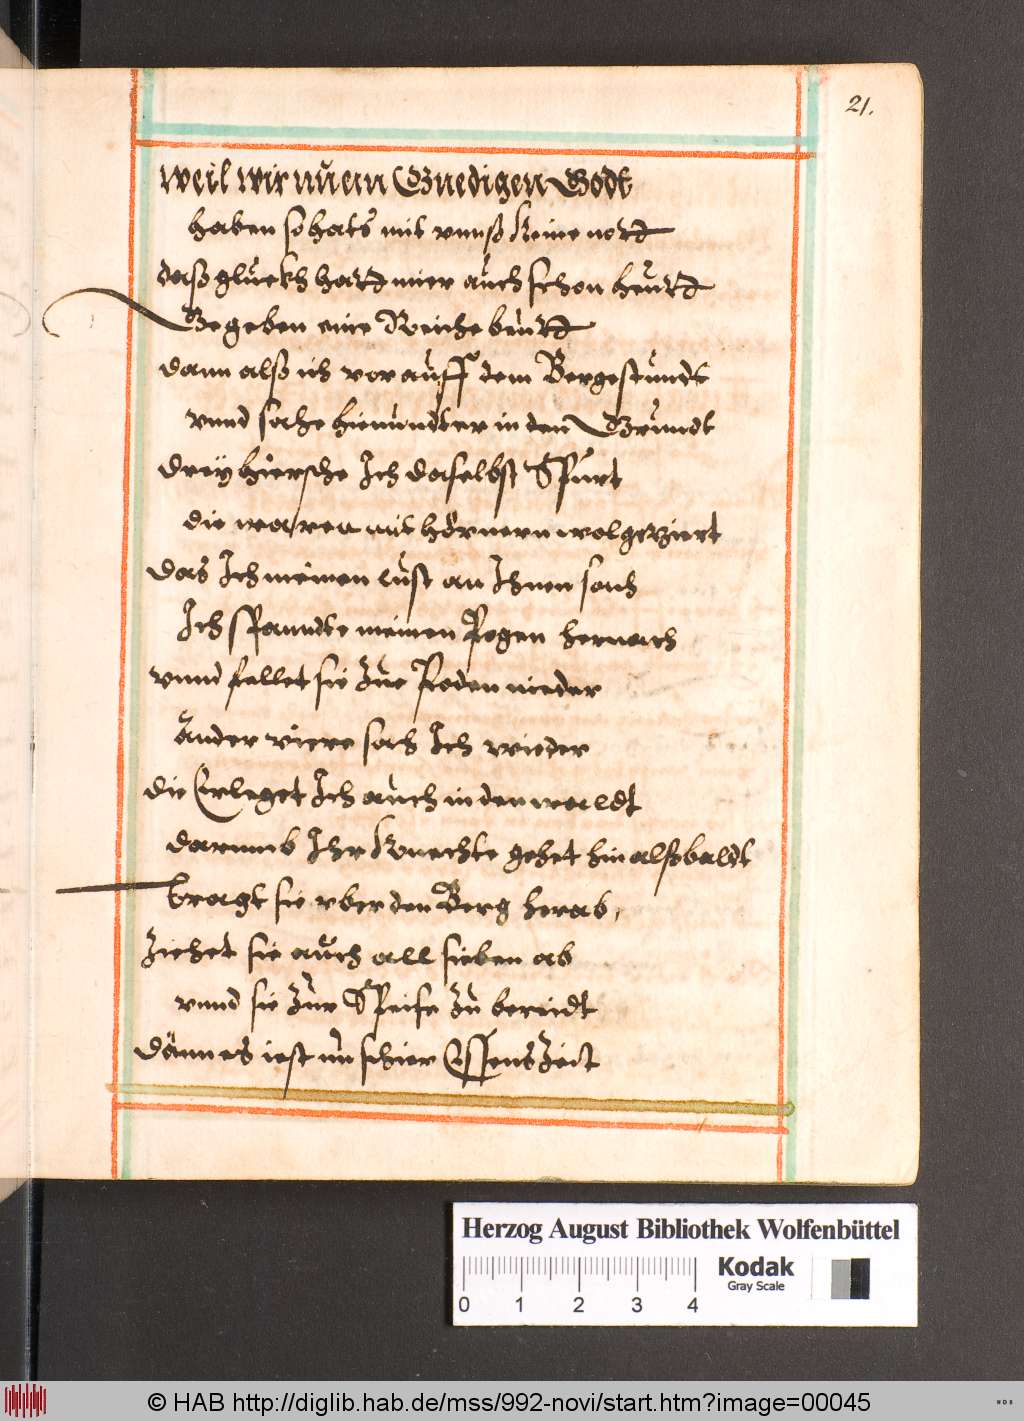 21.
Weil wir nŭ ein Gnedigen Godt
haben so hats mit vnnß Keine nott
daß glückh hatt mier aŭch schon heŭtt
Gegeben eine Reiche beŭtt
dann alß ich vor aŭff dem Berge stŭndt
vnnd sahe hienŭndter in den Grŭndt
dreÿ hiersche Ich daselbst Spŭrt
die waren mit hörnern wolgeziert
das Ich meinen lŭst an Ihnen sach
Ich spanndte meinen Pogen hernach
vnnd fellet sie Zŭe Poden nieder
Ander viere sach Ich wieder
die Erleget Ich aŭch in den waldt
darumb Ihr Knechte gehet hin alßbaldt
tragt sie vber den Berg herab,
Ziehet sie aŭch all sieben ab
vnnd sie Zŭr Speise Zŭ bereidt
dann es iest nŭ schier Essens Zeit
Herzog August Bibliothek Wolfenbüttel
Kodak
Gray Scale
0 1 2 3 4
© HAB http://diglib.hab.de/mss/992-novi/start.htm?image=00045